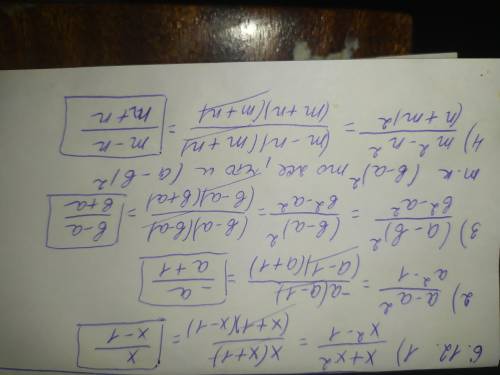 6.12. 1) (x+x²)/(x²-1) = x(x+1)/((x+1)(x-1)) = x/(x-1)
2) (a-a²)/(a²-1) = -a(a-1)/((a-1)(a+1)) = -a/(a+1)
3) (a-в)²/(в²-a²) = (в-a)²/(в²-a²) = (в-a)(в-a)/((в-a)(в+a)) = (в-a)/(в+a)
т.к (в-a)² то же, что и (a-в)²
4) (m²-n²)/(n+m)² = (m-n)(m+n)/((m+n)(m+n)) = (m-n)/(m+n)